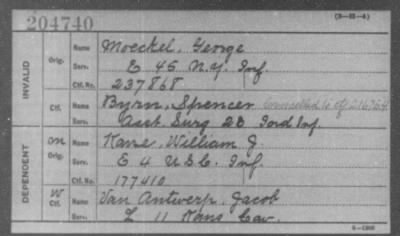 204740 (3-68-A)
INVALID
Orig. Name Moeckel, George
Serv. E 45 N.Y. Inf.
Ctf. No. 237868
Ctf. Name Byrn, Spencer Cancelled
Serv. Asst. Surg 20 Inf.
DEPENDENT
m Orig. Name Kane, William J.
Serv. E 4 U.S.C. Inf.
Ctf. No. 177410
W Ctf. Name Van Antwerp, Jacob
Serv. L 11 Kans Cav.